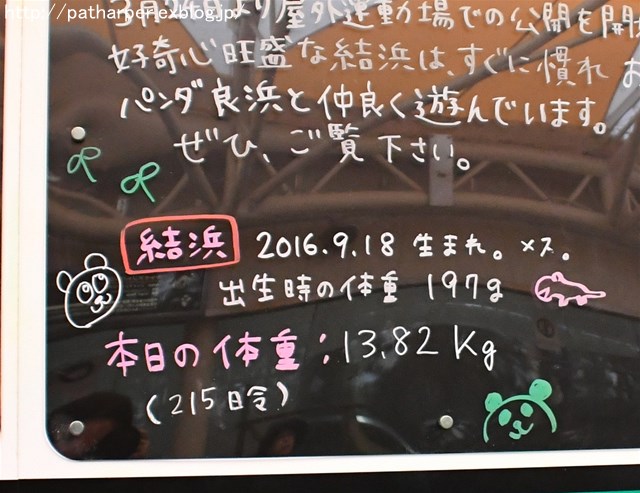 http://pathanberi.exblog.jp
より屋外運動場での公開を開
好奇心旺盛な結浜は、すぐに慣れ お
パンダ良浜と仲良く遊んでいます。
ぜひ、ご覧下さい。
結浜 2016.9.18 生まれ。メス。
出生時の体重 197g
本日の体重:13.82 Kg
(215日令)